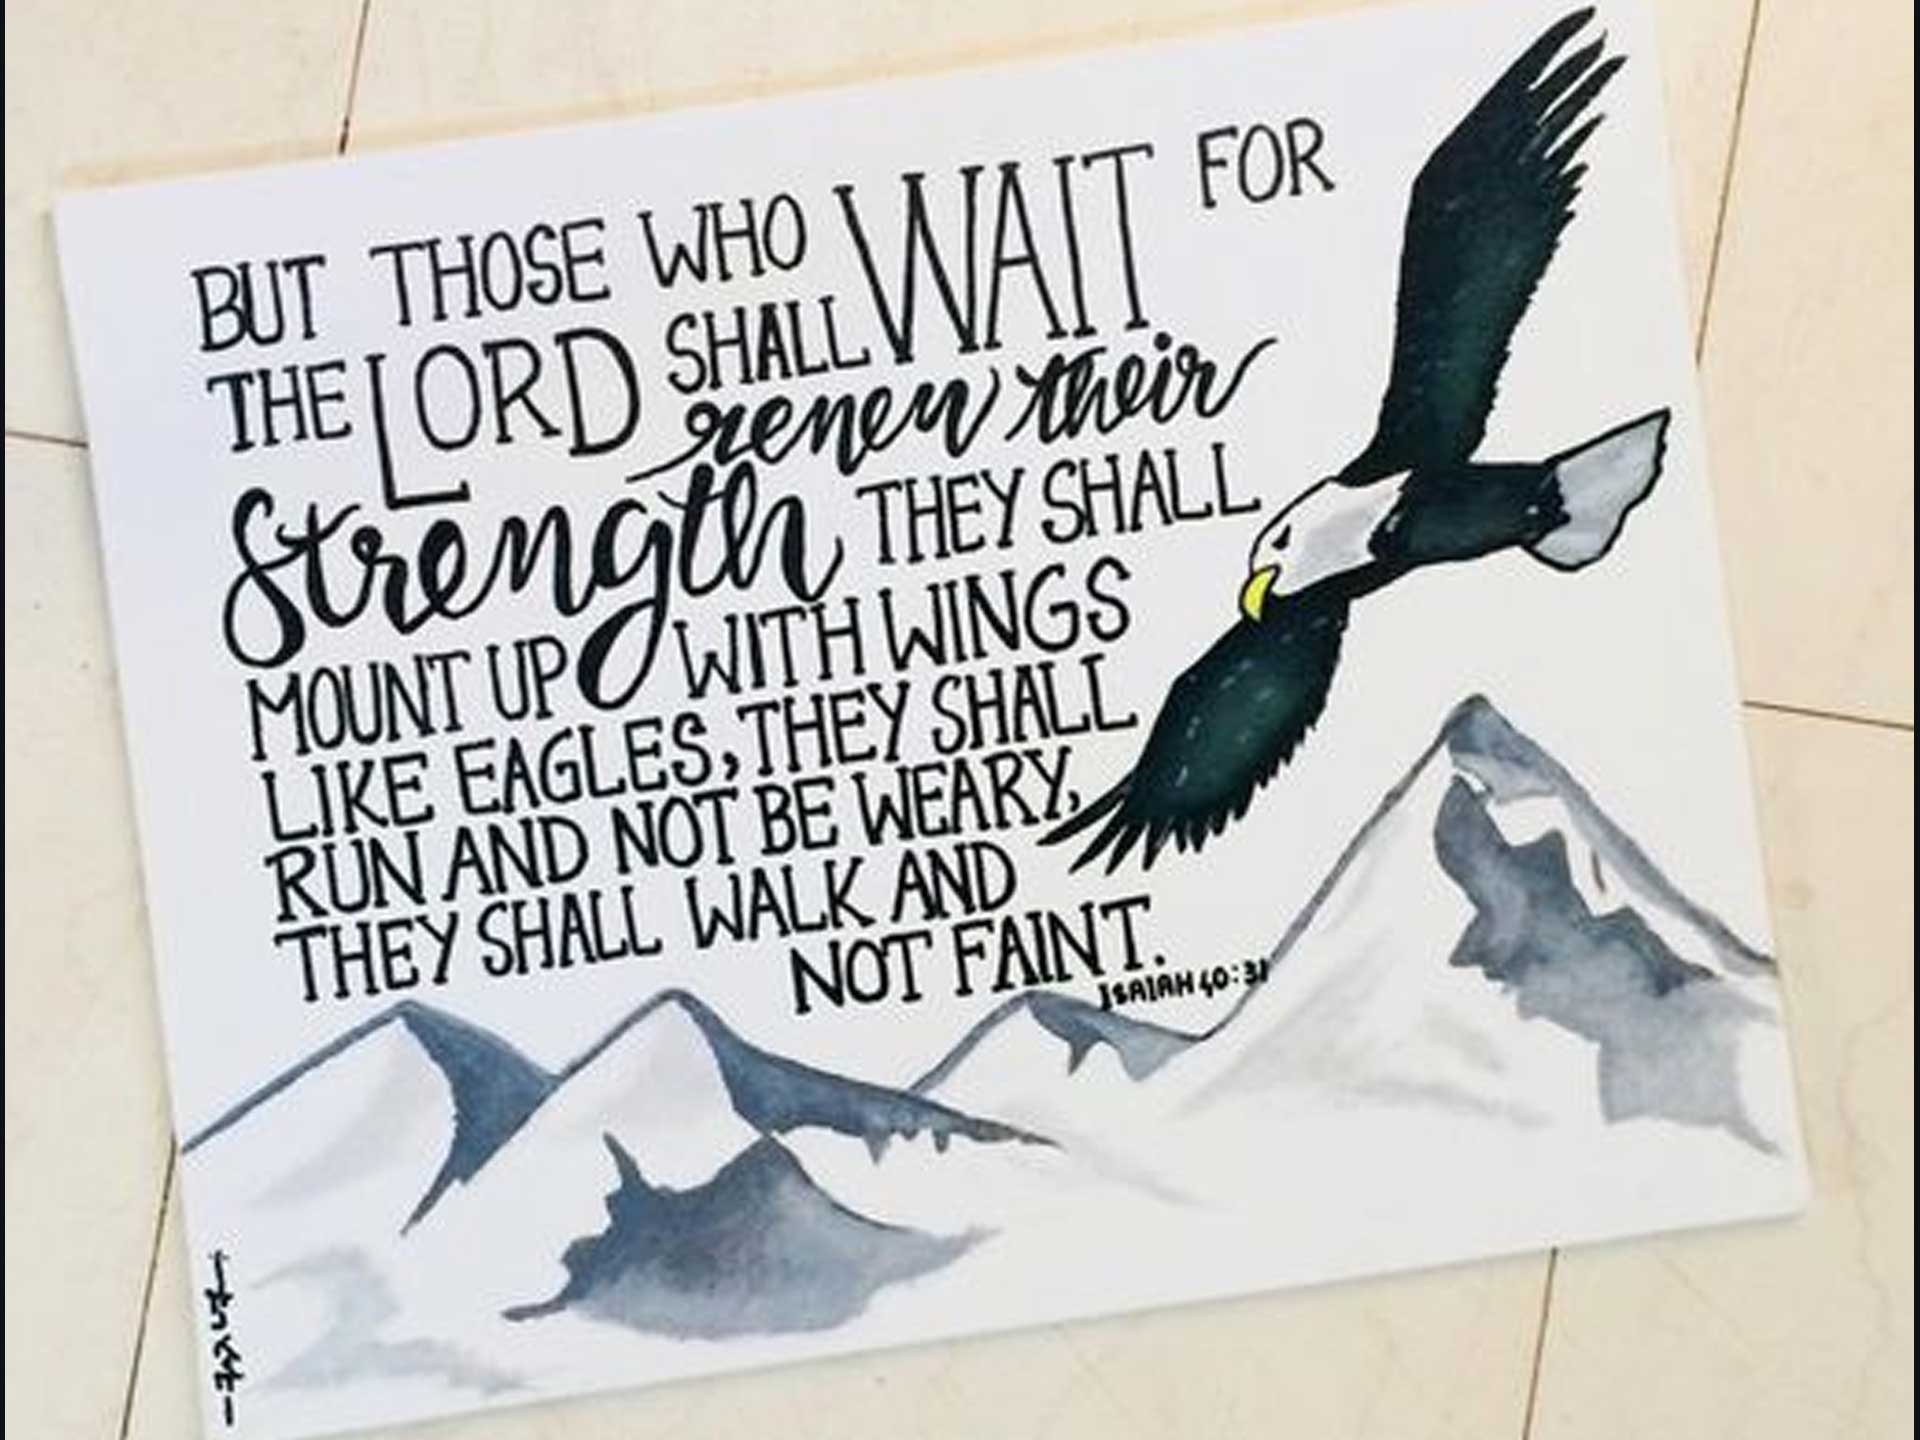 BUT THOSE WHO WAIT FOR
THE LORD SHALL renew their
Strength THEY SHALL
MOUNT UP WITH WINGS
LIKE EAGLES, THEY SHALL
RUN AND NOT BE WEARY,
THEY SHALL WALK AND
NOT FAINT.
ISAIAH 40:31